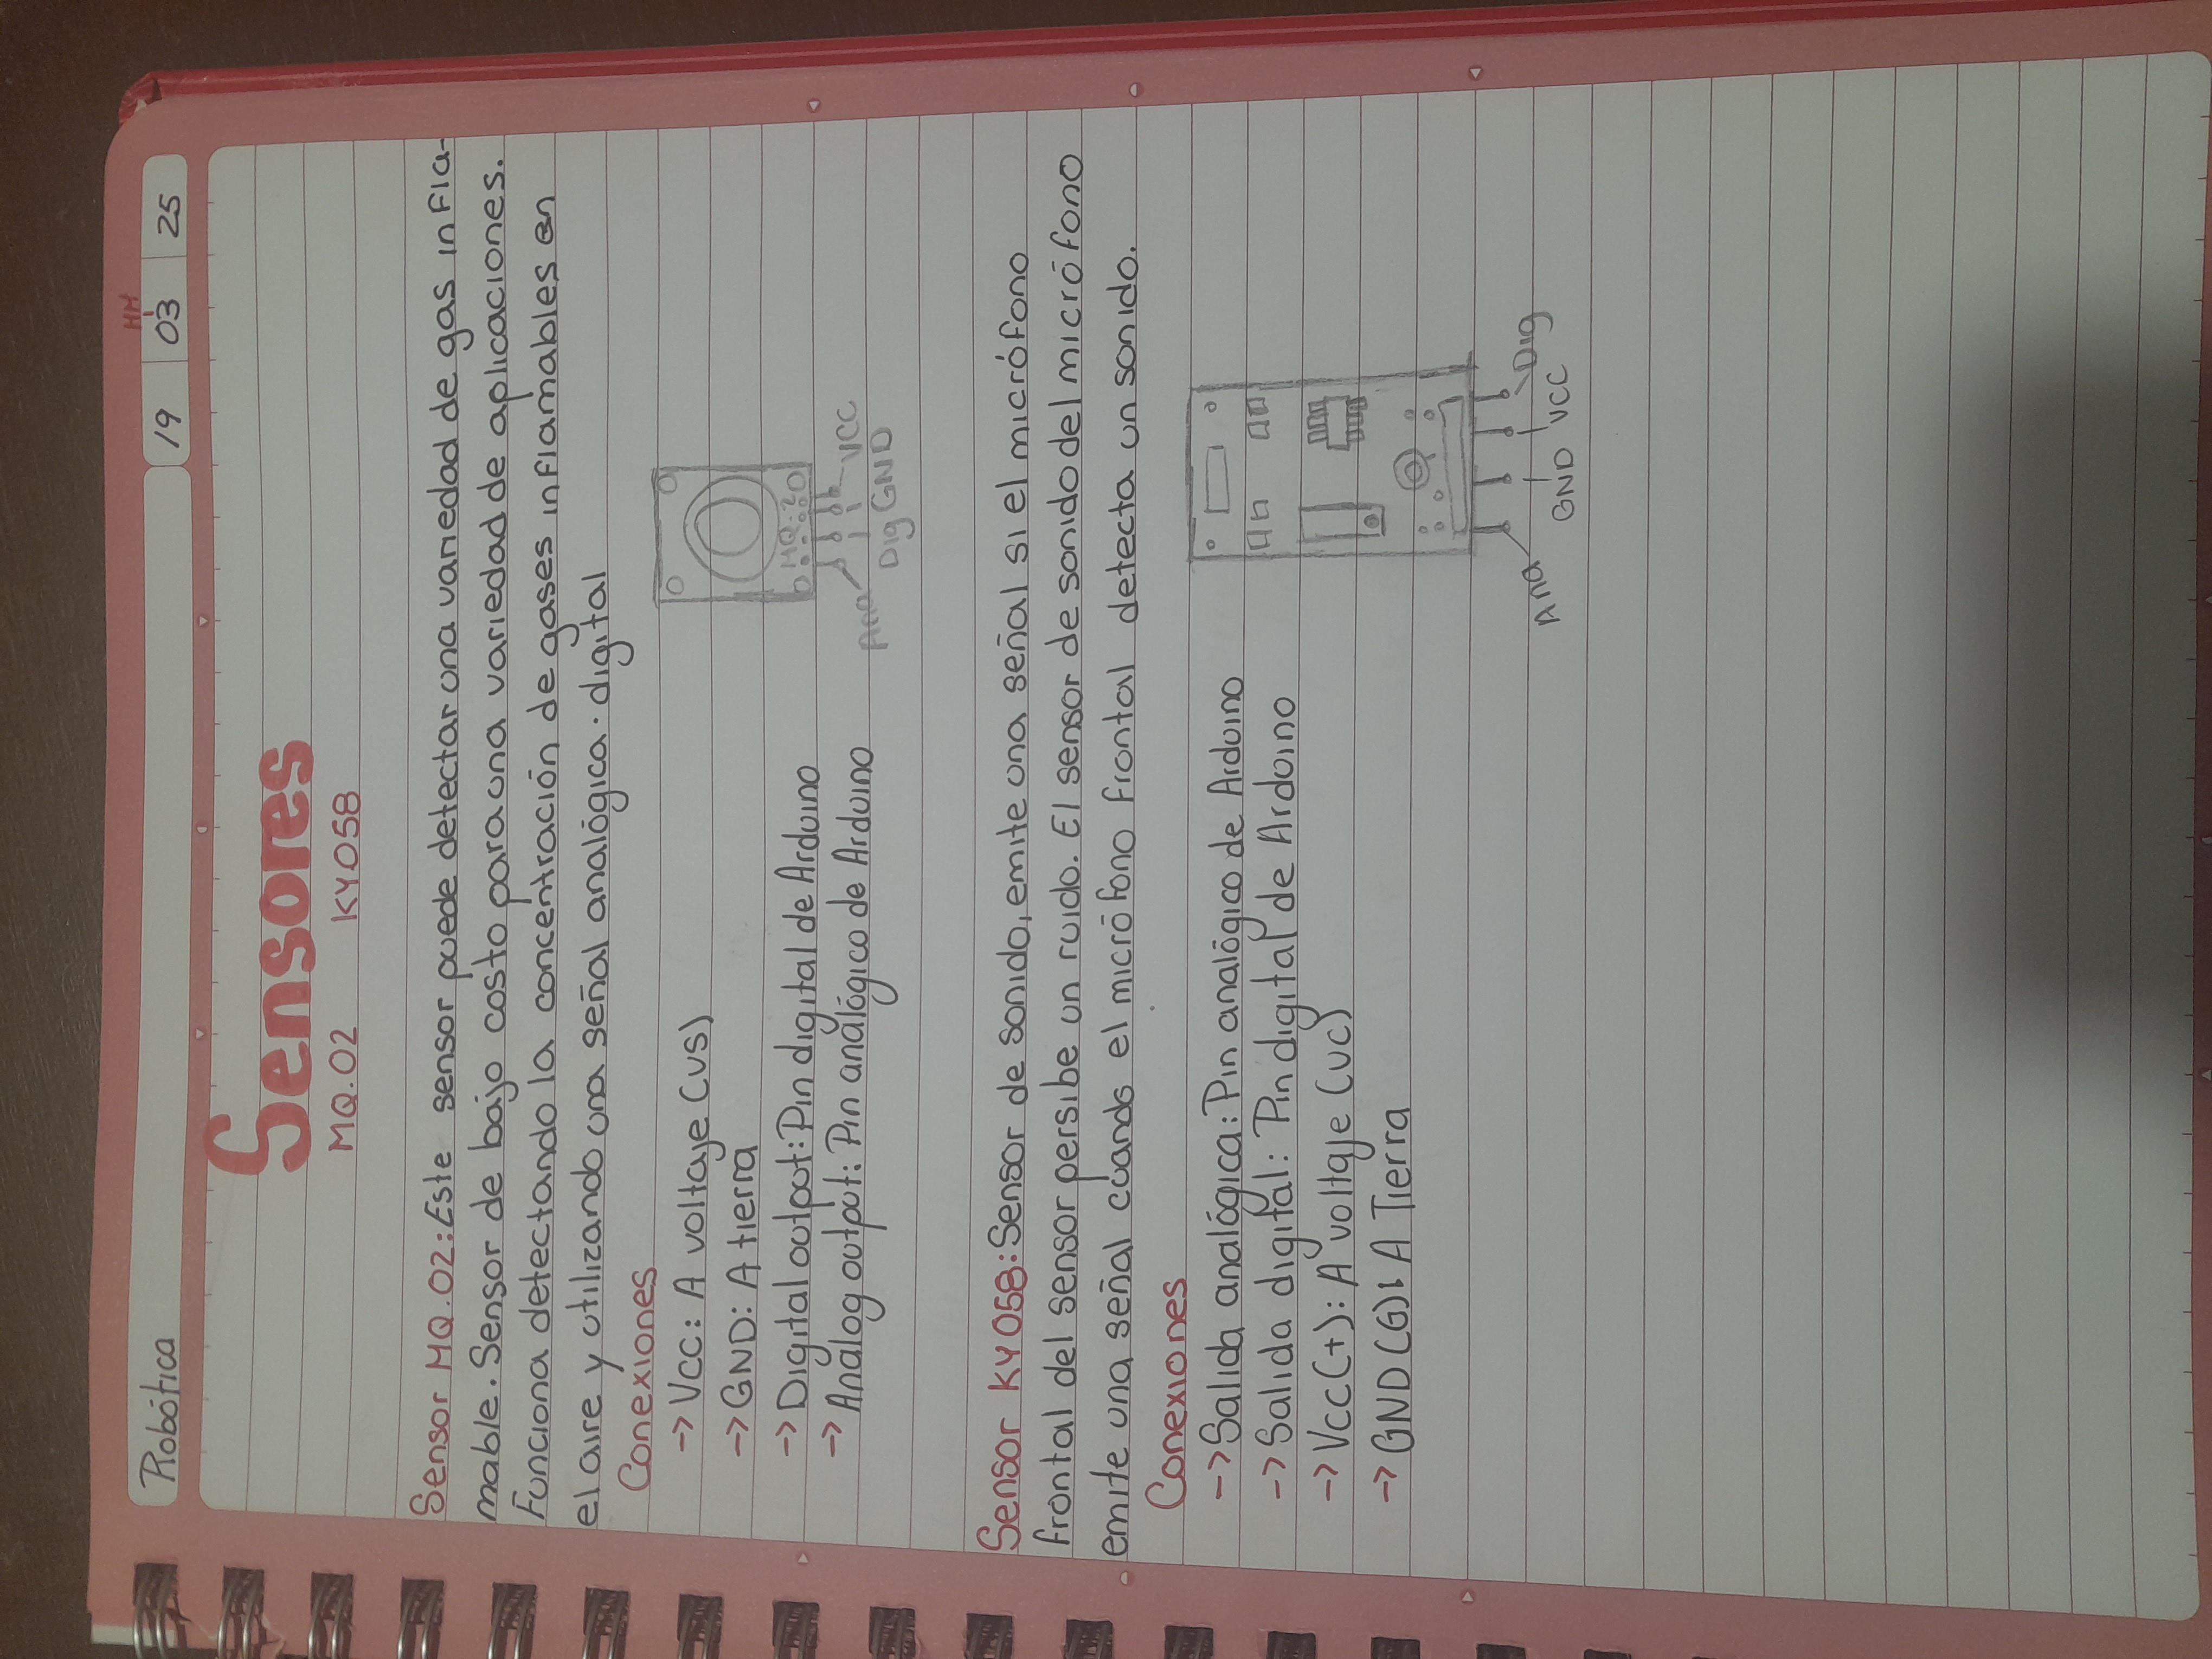 Robótica 19 03 25
HH
Sensores
MQ.02 KY058
Sensor MQ.02: Este sensor puede detectar una variedad de gas infla-
mable. Sensor de bajo costo para una variedad de aplicaciones.
Funciona detectando la concentración de gases inflamables en
el aire y utilizando una señal analógica. digital
Conexiones
-> Vcc: A voltaje (vs)
-> GND: A tierra
-> Digital output: Pin digital de Arduino
-> Análog output: Pin analógico de Arduino
MQ.2
Ana Dig GND VCC
Sensor KY058: Sensor de sonido, emite una señal si el micrófono
frontal del sensor persibe un ruido. El sensor de sonido del micrófono
emite una señal cuando el micrófono frontal detecta un sonido.
Conexiones
-> Salida analógica: Pin analógico de Arduino
-> Salida digital: Pin digital de Arduino
-> Vcc(+): A voltaje (vc)
-> GND(G): A Tierra
Ana GND VCC Dig